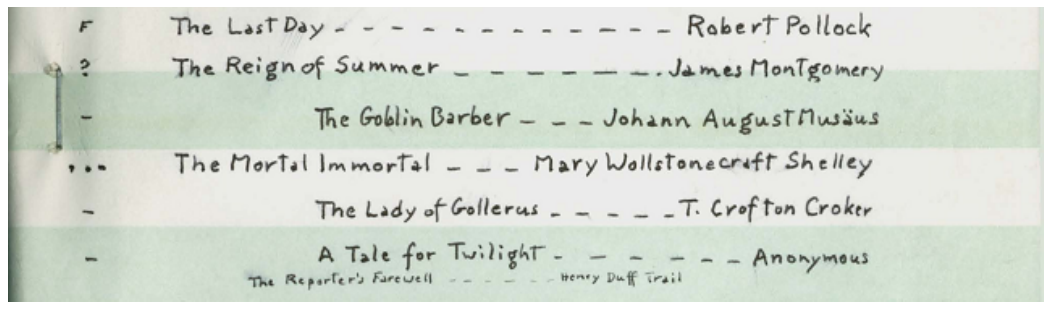 F The Last Day - - - - - - - - - - - - - Robert Pollock
? The Reign of Summer - - - - - - -. James Montgomery
- The Goblin Barber - - - Johann August Musäus
... The Mortal Immortal - - - Mary Wollstonecraft Shelley
- The Lady of Gollerus - - - - - T. Crofton Croker
- A Tale for Twilight - - - - - - - Anonymous
The Reporter's Farewell - - - - - - Henry Duff Trail